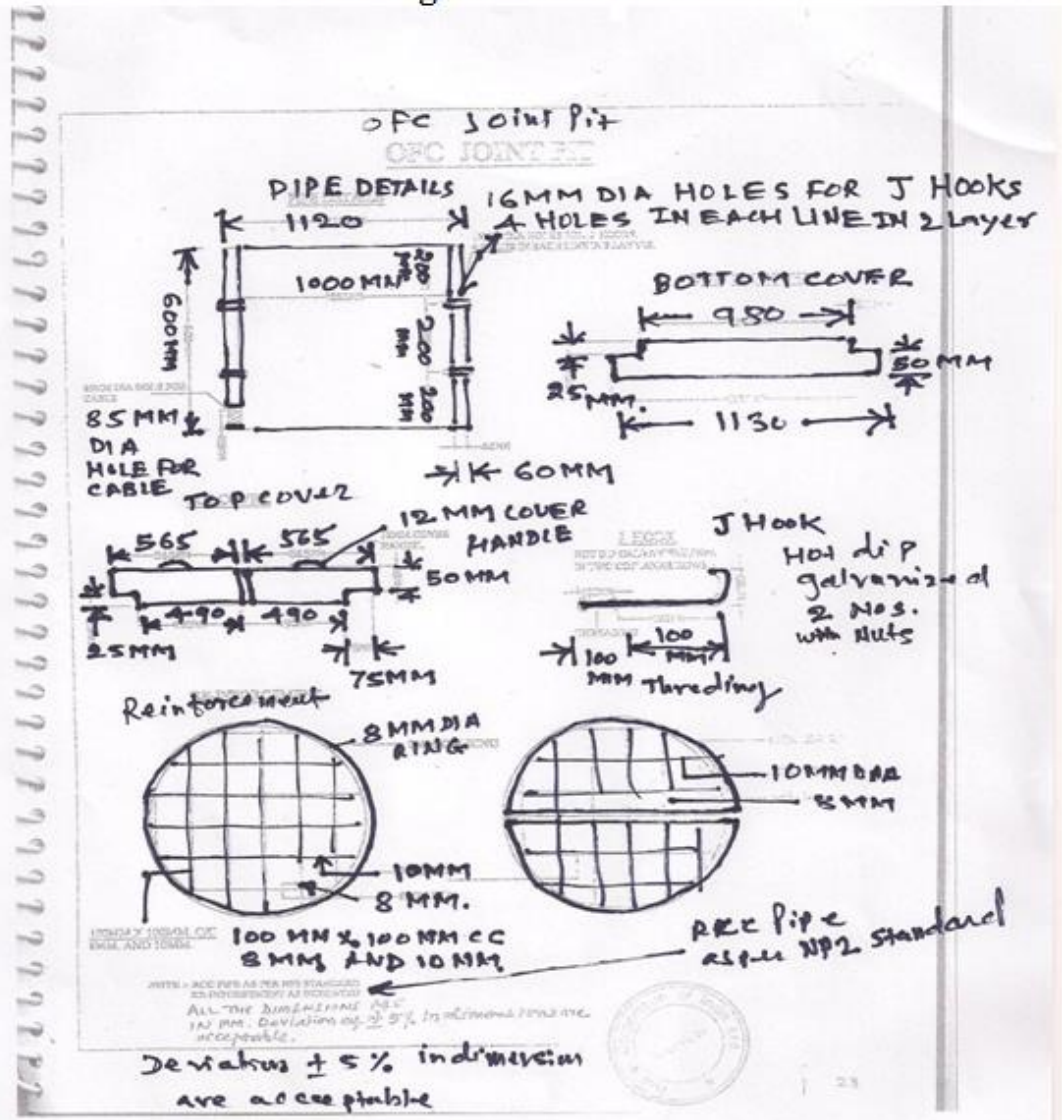 OFC Joint Pit
OFC JOINT PIT
PIPE DETAILS
1120
16MM DIA HOLES FOR J HOOKS
4 HOLES IN EACH LINE IN 2 Layer
1000 MM
200 MM
200 MM
200 MM
600MM
85MM
DIA
HOLE FOR
CABLE
60MM
BOTTOM COVER
980
25MM.
50 MM
1130
TOP COVER
565
565
12 MM COVER
HANDLE
50MM
490
490
25MM
75MM
J HOOK
J Hook
Hot dip
galvanized
2 Nos.
with Nuts
100
MM
100
MM
Threding
Reinforcement
8 MM DIA
RING
10MM
8 MM.
100 MM X 100MM CC
8MM AND 10MM
10MM DIA
8MM
RCC Pipe
as per NP2 Standard
ALL THE DIMENSIONS ARE
IN MM. Deviation of ± 5% in dimensions are
acceptable.
Deviation ± 5% in dimersion
are acceptable
23